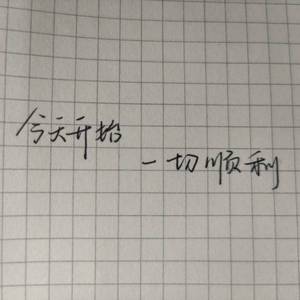 今天开始
一切顺利